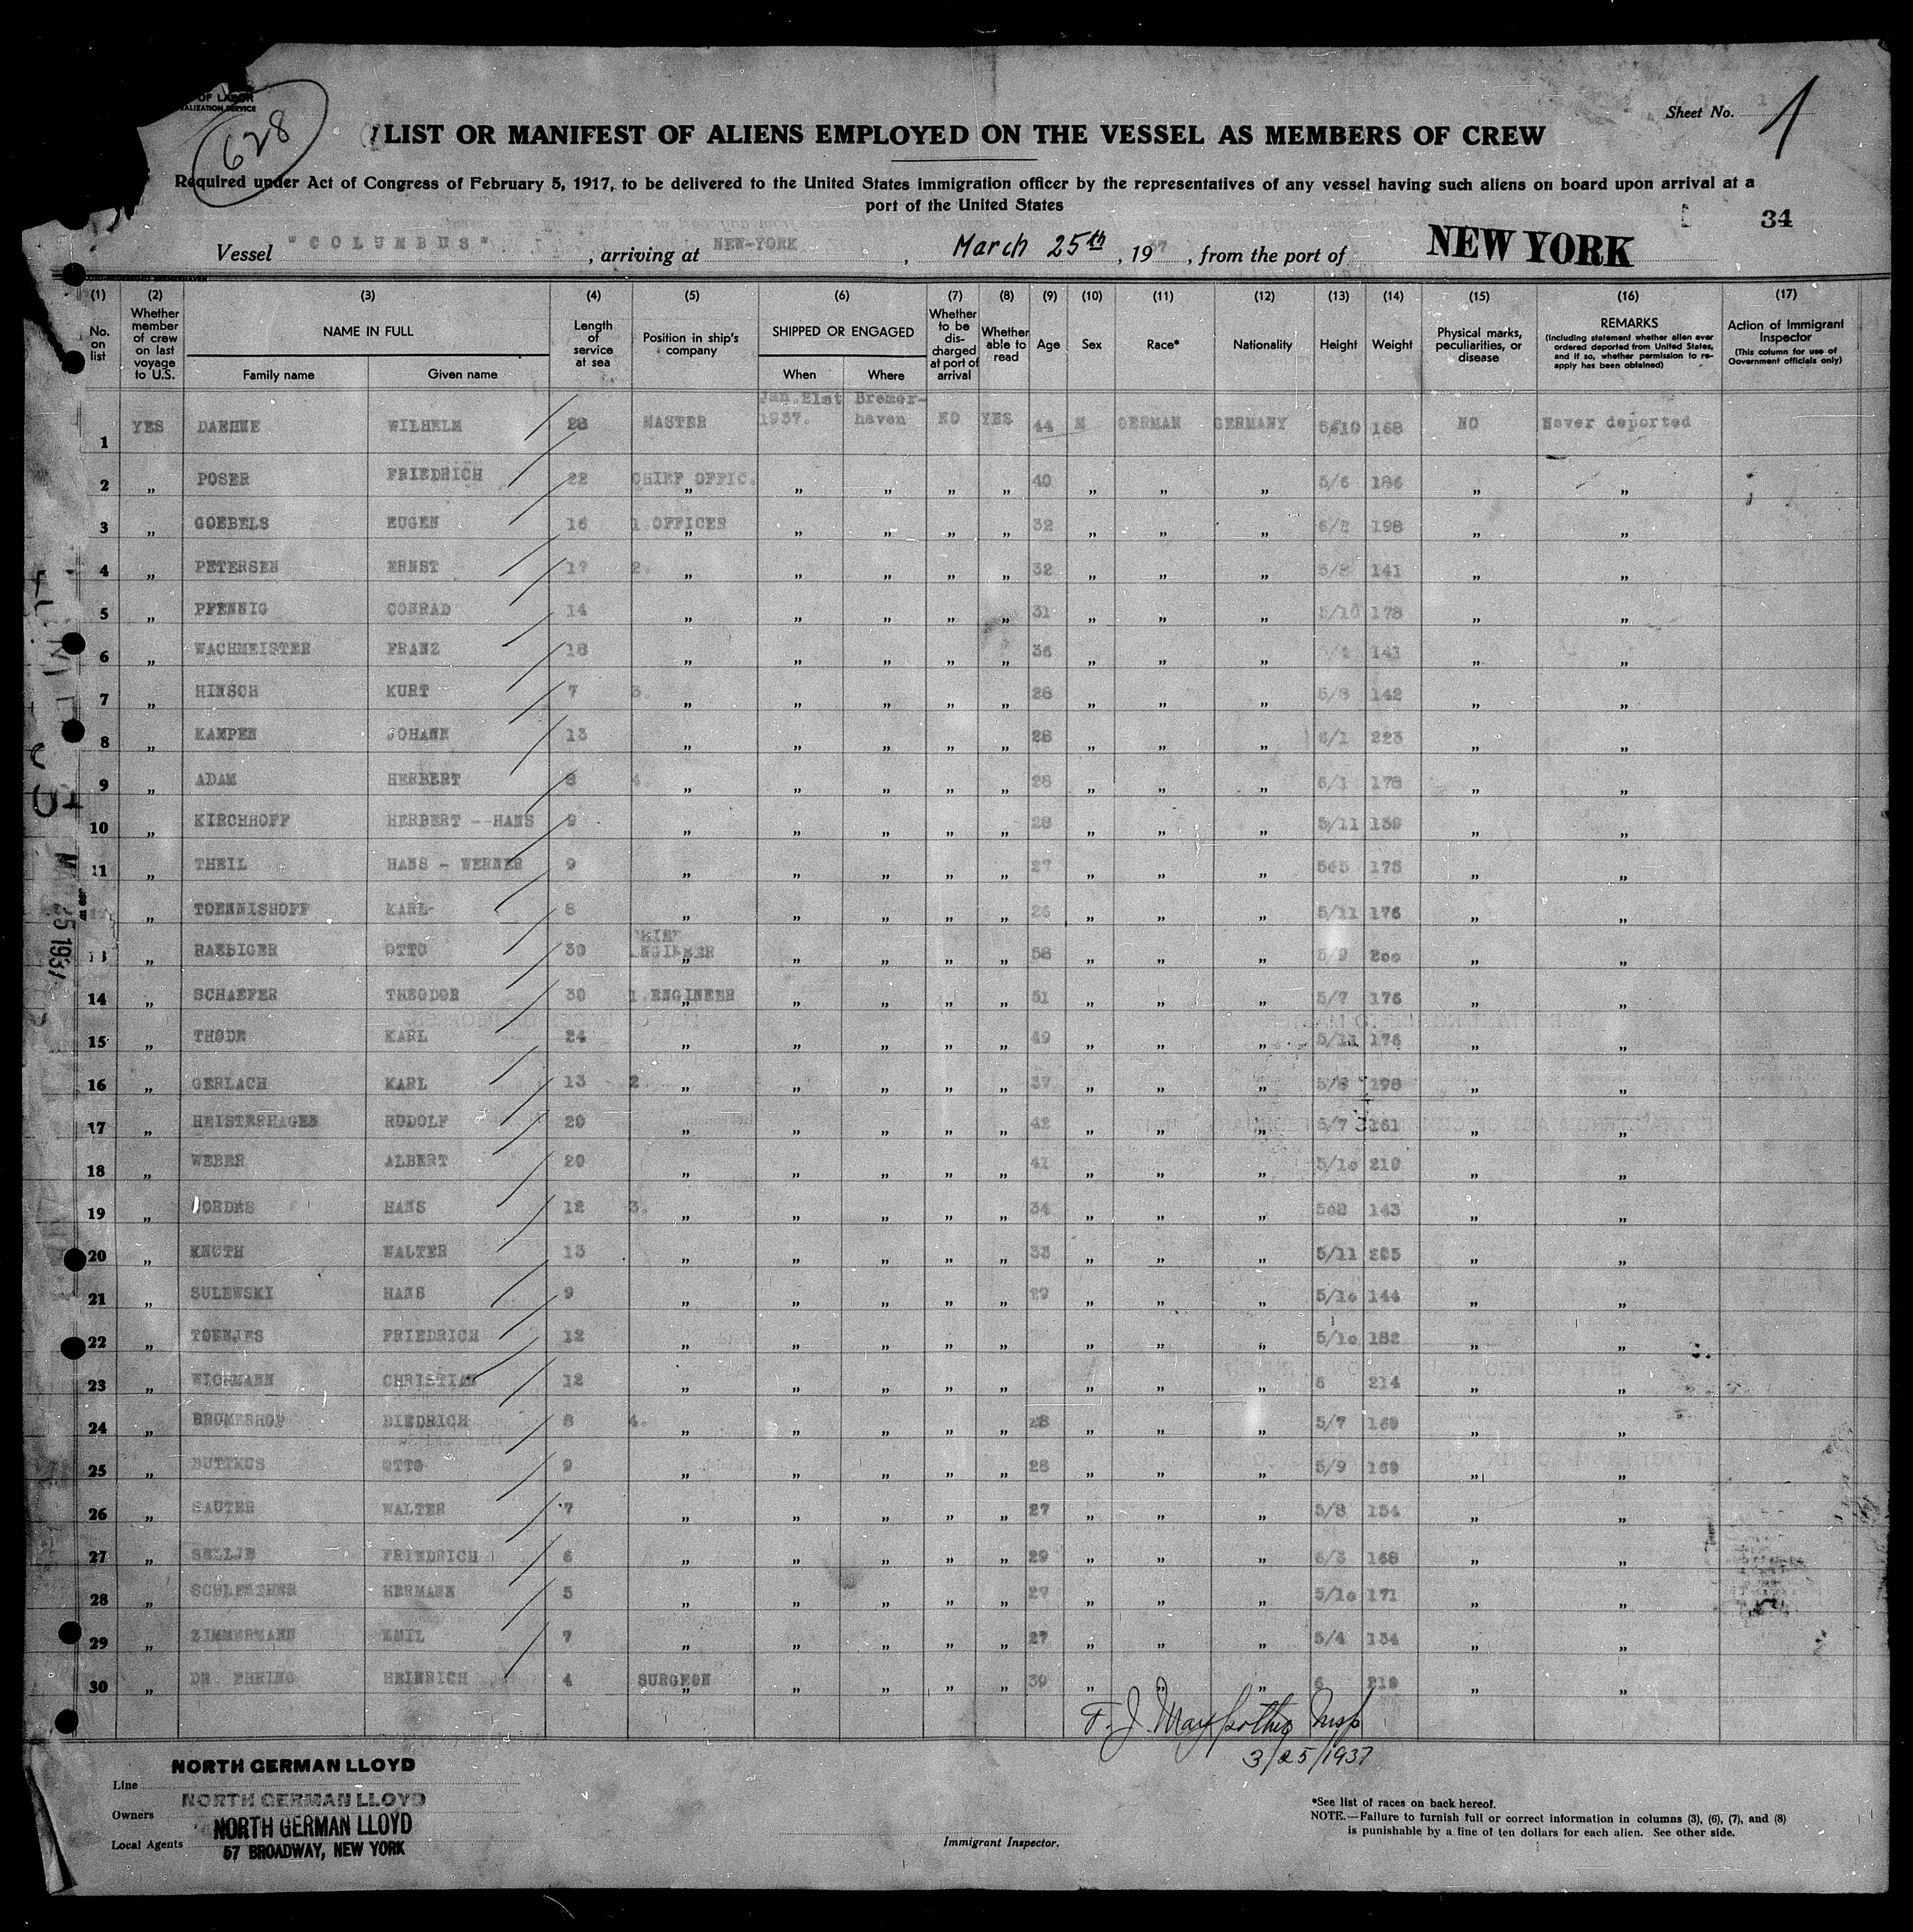 OF LABOR
628
Sheet No. 1
LIST OR MANIFEST OF ALIENS EMPLOYED ON THE VESSEL AS MEMBERS OF CREW
Required under Act of Congress of February 5, 1917, to be delivered to the United States immigration officer by the representatives of any vessel having such aliens on board upon arrival at a
port of the United States
34
Vessel "COLUMBUS", arriving at NEW-YORK, March 25th, 1937, from the port of NEW YORK
(1) (2) (3) (4) (5) (6) (7) (8) (9) (10) (11) (12) (13) (14) (15) (16) (17)
No. on list
Whether member of crew on last voyage to U.S.
NAME IN FULL
Family name Given name
Length of service at sea
Position in ship's company
SHIPPED OR ENGAGED
When Where
Whether to be discharged at port of arrival
Whether able to read
Age
Sex
Race*
Nationality
Height
Weight
Physical marks, peculiarities, or disease
REMARKS
(Including statement whether alien ever ordered deported from United States, and if so, whether permission to reapply has been obtained)
Action of Immigrant Inspector
(This column for use of Government officials only)
1 YES DAEHNE WILHELM 28 MASTER Jan.21st 1937. Bremerhaven NO YES 44 M GERMAN GERMANY 5/10 168 NO Never deported
2 " POSER FRIEDRICH 22 CHIEF OFFIC. " " " " 40 " " " 5/6 186 " "
3 " GOEBELS EUGEN 16 1.OFFICES " " " " 32 " " " 6/2 198 " "
4 " PETERSEN ERNST 17 2. " " " " " 32 " " " 5/8 141 " "
5 " PFENNIG CONRAD 14 " " " " " 31 " " " 5/10 178 " "
6 " WACHMEISTER FRANZ 18 " " " " " 36 " " " 5/4 141 " "
7 " HINSCH KURT 7 3. " " " " " 28 " " " 5/8 142 " "
8 " KAMPEN JOHANN 13 " " " " " 28 " " " 6/1 223 " "
9 " ADAM HERBERT 8 4. " " " " " 28 " " " 6/1 178 " "
10 " KIRCHHOFF HERBERT - HANS 9 " " " " " 28 " " " 5/11 159 " "
11 " THEIL HANS - WERNER 9 " " " " " 27 " " " 565 175 " "
" TOENNISHOFF KARL 8 " " " " " 26 " " " 5/11 176 " "
13 " RAEBIGER OTTO 30 CHIEF ENGINEER " " " " 58 " " " 5/9 200 " "
14 " SCHAEFER THEODOR 30 1.ENGINEER " " " " 51 " " " 5/7 176 " "
15 " THODE KARL 24 " " " " " 49 " " " 5/11 176 " "
16 " GERLACH KARL 13 2. " " " " " 37 " " " 5/8 198 " "
17 " HEISTERHAGEN RUDOLF 20 " " " " " 42 " " " 5/7 161 " "
18 " WEBER ALBERT 20 " " " " " 41 " " " 5/10 210 " "
19 " JORDES HANS 12 3. " " " " " 34 " " " 568 143 " "
20 " KNUTH WALTER 13 " " " " " 33 " " " 5/11 205 " "
21 " SULEWSKI HANS 9 " " " " " 29 " " " 5/10 144 " "
22 " TOENJES FRIEDRICH 12 " " " " " " " " 5/10 182 " "
23 " WICHMANN CHRISTIAN 12 " " " " " " " " 6 214 " "
24 " BRUMESHOP DIEDRICH 8 4. " " " " " 28 " " " 5/7 160 " "
25 " BUTTKUS OTTO 9 " " " " " 28 " " " 5/9 169 " "
26 " SAUTER WALTER 7 " " " " " 27 " " " 5/8 154 " "
27 " SELLJE FRIEDRICH 6 " " " " " 29 " " " 6/3 168 " "
28 " HERMANN 5 " " " " " 27 " " " 5/10 171 " "
29 " ZIMMERMANN EMIL 7 " " " " " 27 " " " 5/4 134 " "
30 " DR. EHRING HEINRICH 4 SURGEON " " " " 39 " " " 6 210 " "
F. J. Insp
3/25/1937
Line NORTH GERMAN LLOYD
Owners NORTH GERMAN LLOYD
Local Agents NORTH GERMAN LLOYD
57 BROADWAY, NEW YORK
Immigrant Inspector.
*See list of races on back hereof.
NOTE.—Failure to furnish full or correct information in columns (3), (6), (7), and (8)
is punishable by a fine of ten dollars for each alien. See other side.